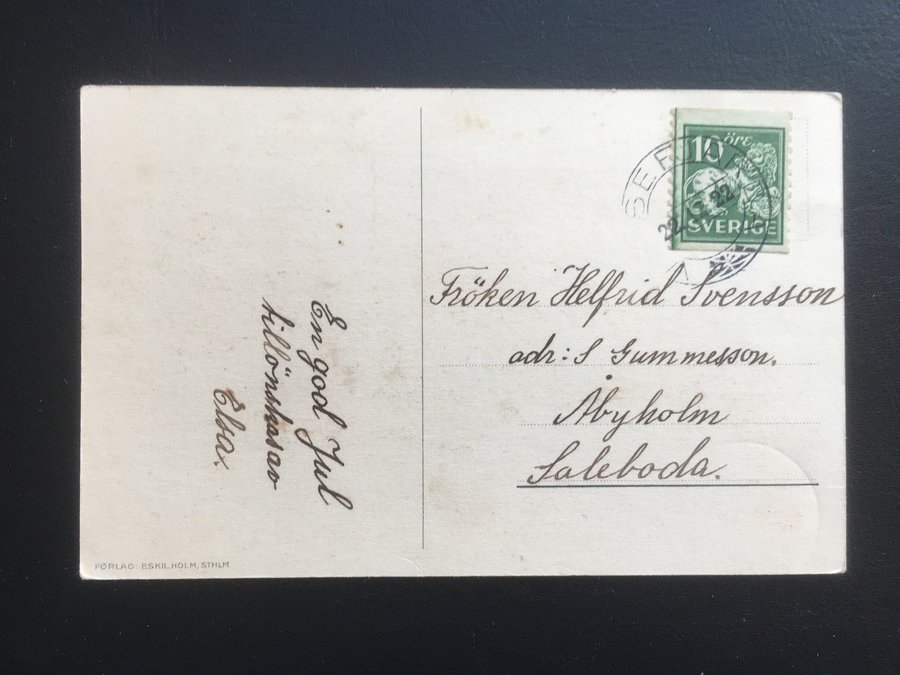 En god Jul
tillönskas av
Elsa.
FÖRLAG: ESKIL HOLM, STHLM
10 ÖRE
SVERIGE
22.12.22
Fröken Helfrid Svensson
adr: S Gummesson.
Åbyholm
Saleboda.